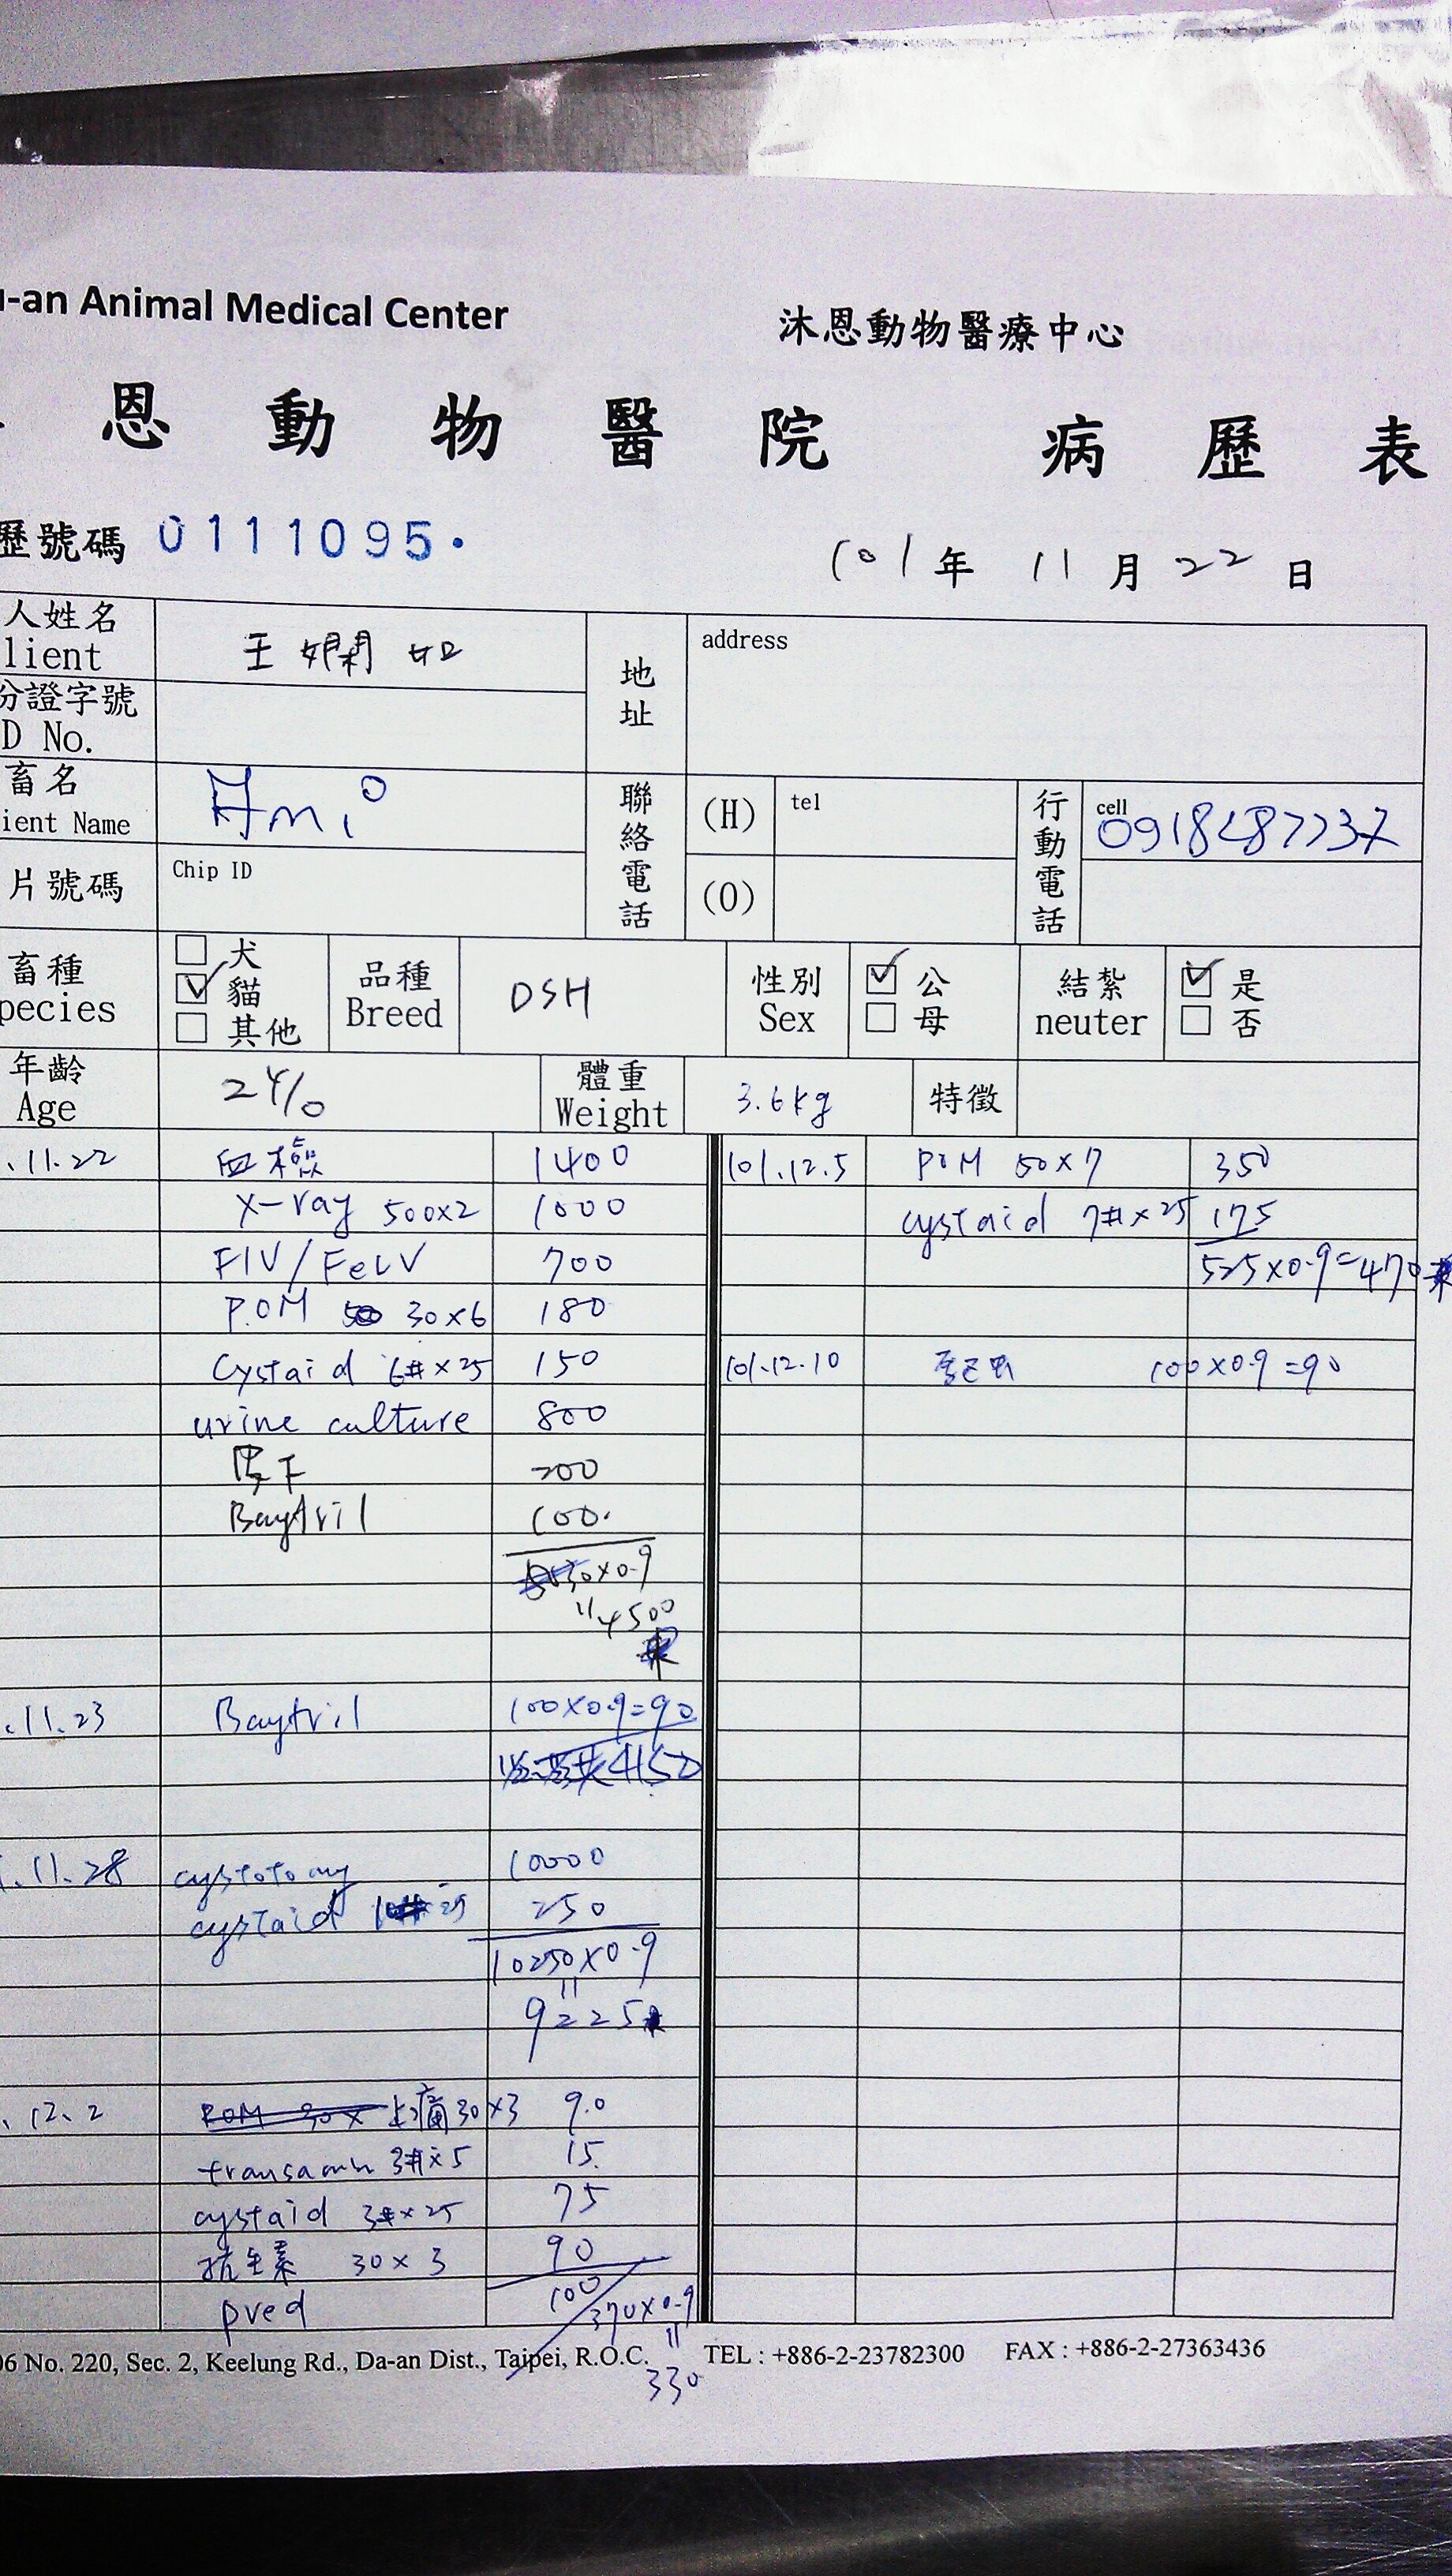 -an Animal Medical Center 沐恩動物醫療中心
恩動物醫院 病歷表
歷號碼 0111095.
101年 11月 22日
人姓名 王嫻如 地址 address
lient
分證字號
D No.
畜名 Ami 聯絡電話 (H) tel 行動電話 cell
ient Name
片號碼 Chip ID (O)
畜種 犬 品種 DSH 性別 公 結紮 是
pecies 貓 Breed Sex 母 neuter 否
其他
年齡 2y/o 體重 3.6kg 特徵
Age Weight
.11.22 血檢 1400 101.12.5 POM 50×7 350
X-ray 500×2 1000 cystaid 7#×25 175
FIV/FeLV 700 525×0.9=470
P.OM 30×6 180
Cystaid 6#×25 150 101.12.10 100×0.9=90
urine culture 800
皮下 200
Baytril 100.
×0.9
"4500
.11.23 Baytril 100×0.9=90
.11.28 cystotomy 10000
cystaid 25 250
10250×0.9
"
9225
.12.2 止痛30×3 90
transamin 3#×5 15
cystaid 3#×25 75
抗生素 30×3 90
pred 100
370×0.9
"
330
06 No. 220, Sec. 2, Keelung Rd., Da-an Dist., Taipei, R.O.C. TEL : +886-2-23782300 FAX : +886-2-27363436